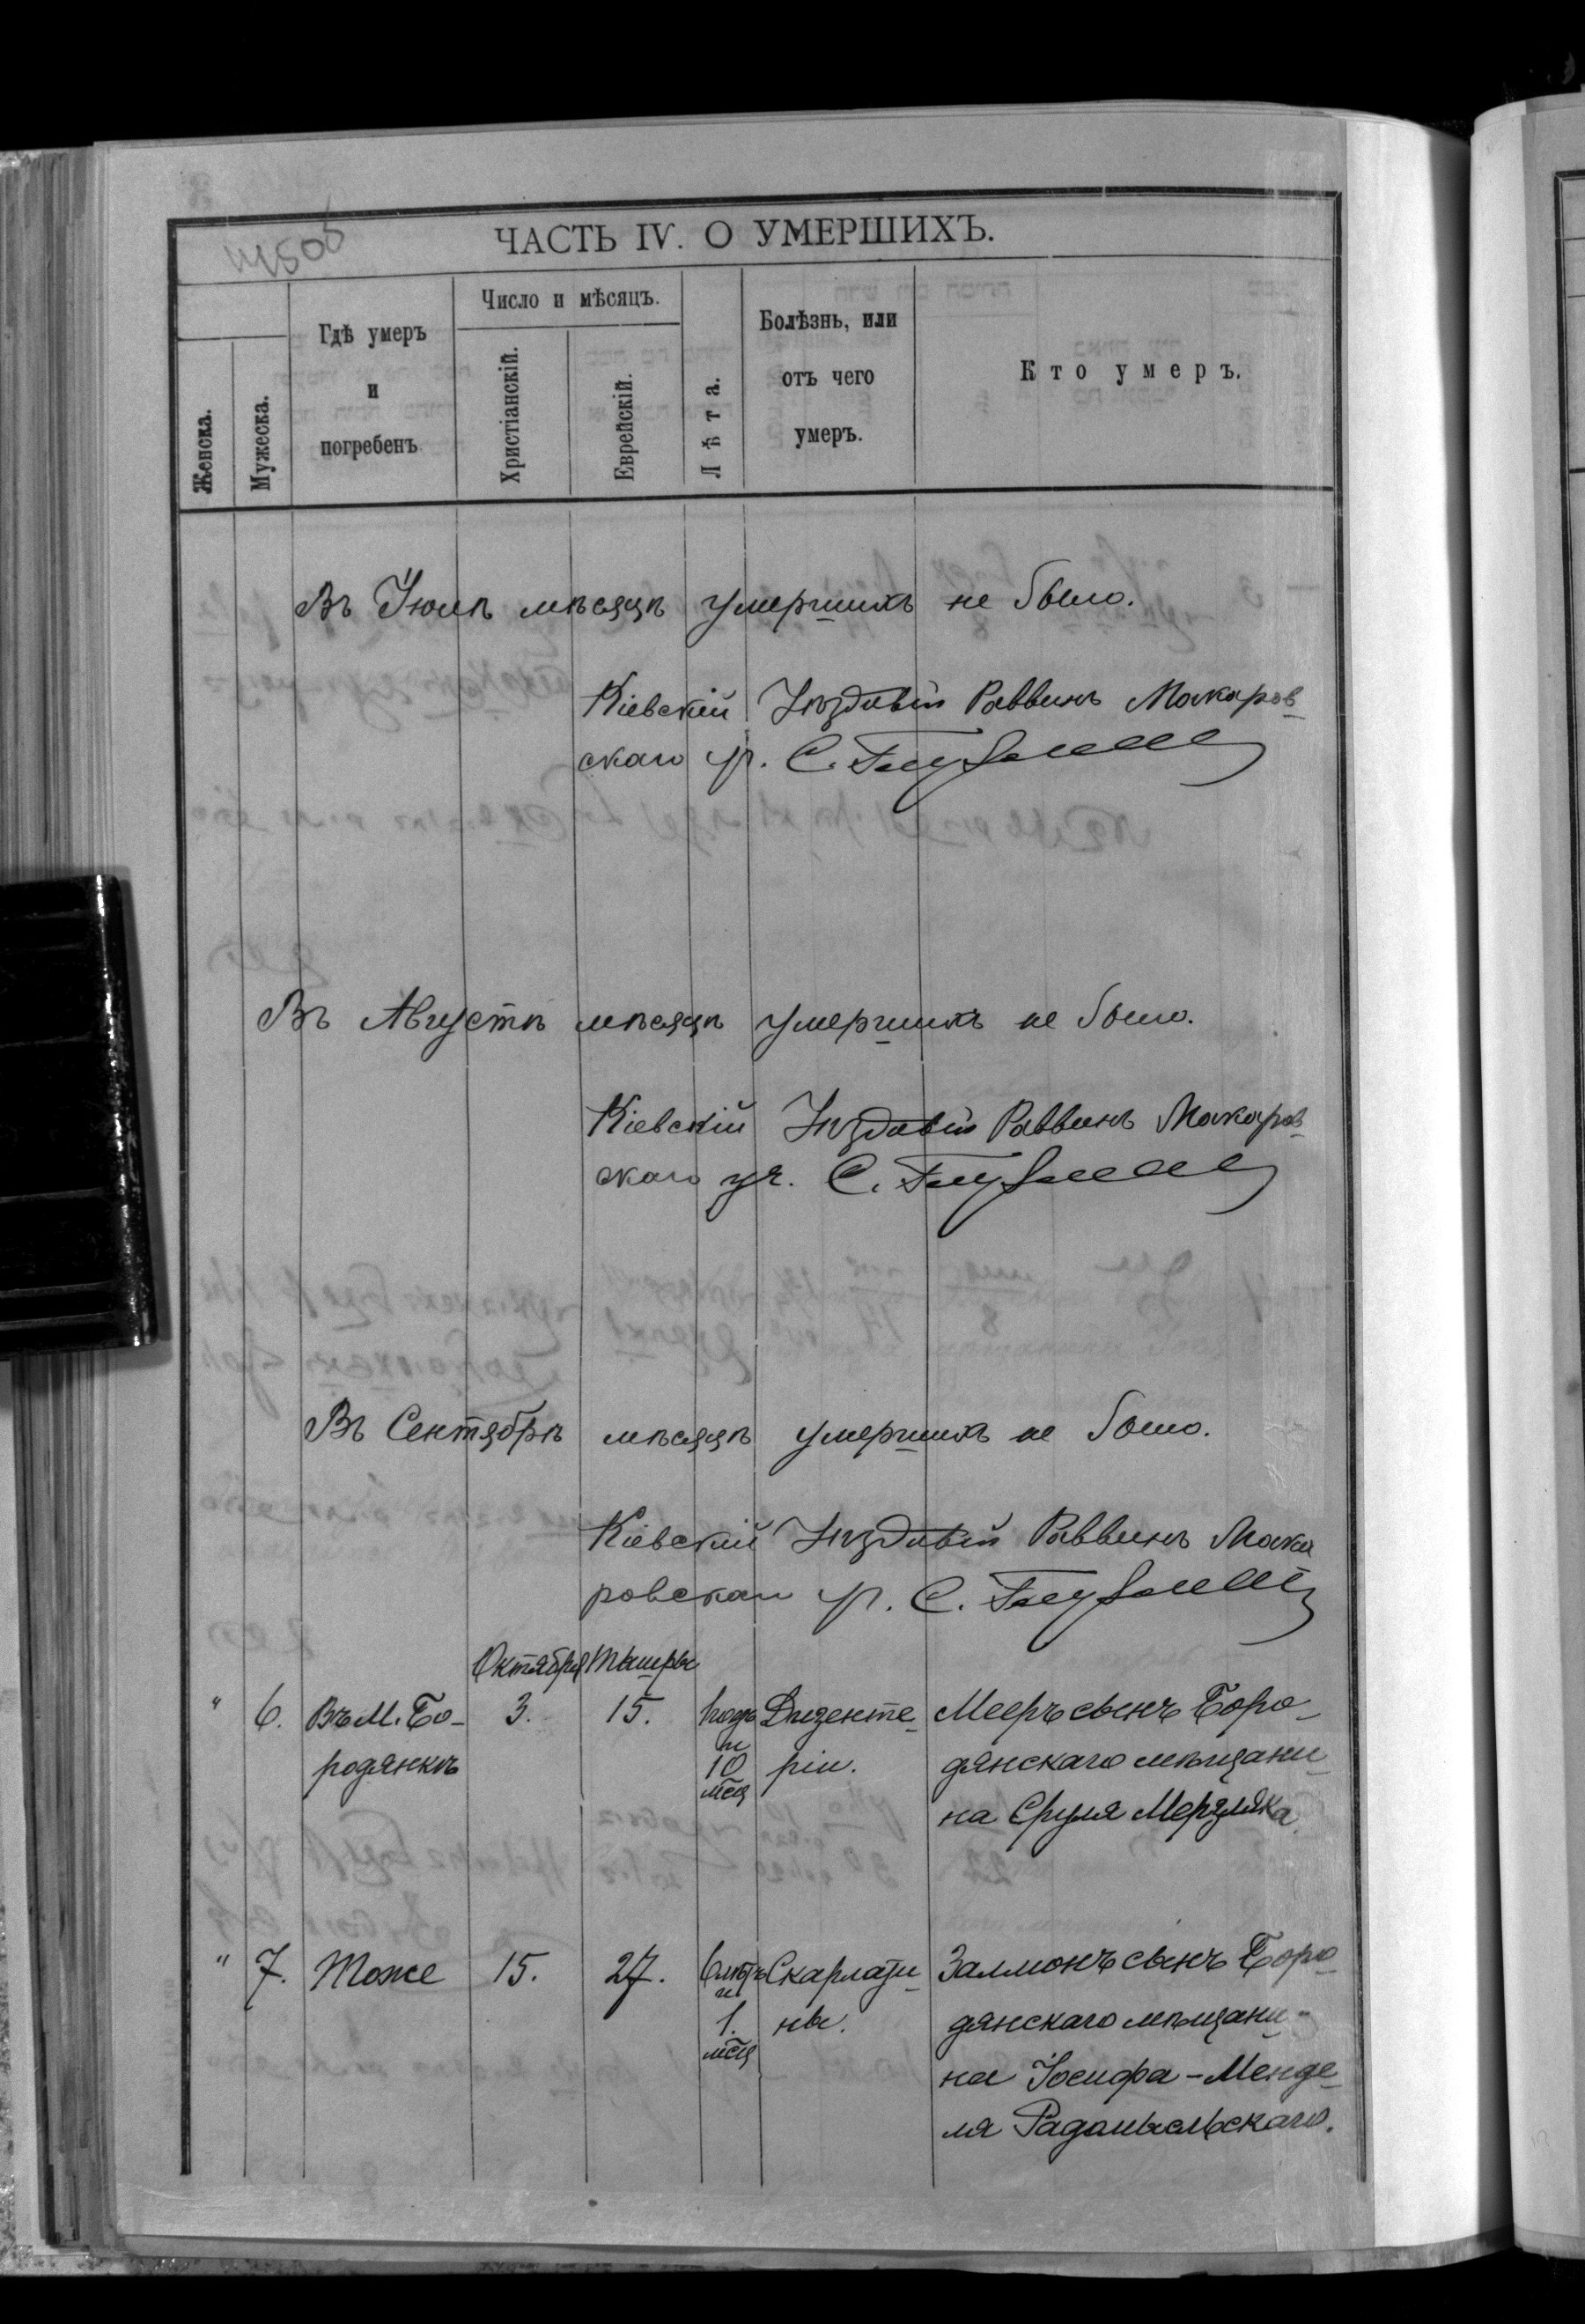 ЧАСТЬ IV. О УМЕРШИХЪ.
Женска.
Мужеска.
Гдѣ умеръ
и
погребенъ
Число и мѣсяцъ.
Христіанскій.
Еврейскій.
Лѣта.
Болѣзнь, или
отъ чего
умеръ.
Кто умеръ.
Въ Іюлѣ мѣсяцѣ умершихъ не было.
Кіевскій Уѣздный Раввинъ Макаров-
скаго уч. С.
Въ Августѣ мѣсяцѣ умершихъ не было.
Кіевскій Уѣздный Раввинъ Макаров-
скаго уч. С.
Въ Сентябрѣ мѣсяцѣ умершихъ не было.
Кіевскій Уѣздный Раввинъ Мака
ровскаго уч. С.
Октября Тишры
" 6. Въ М. Бо- 3. 15. 1 годъ Дизенте- Мееръ сынъ Боро-
родянкѣ и 10 мсц ріи. дянскаго мѣщани-
на Сруля Мерзляка.
" 7. Тоже 15. 27. 6 лѣтъ Скарлати- Залмонъ сынъ Боро-
и 1. мсц ны. дянскаго мѣщани-
на Іосифа-Менде-
ля Радомысльскаго.